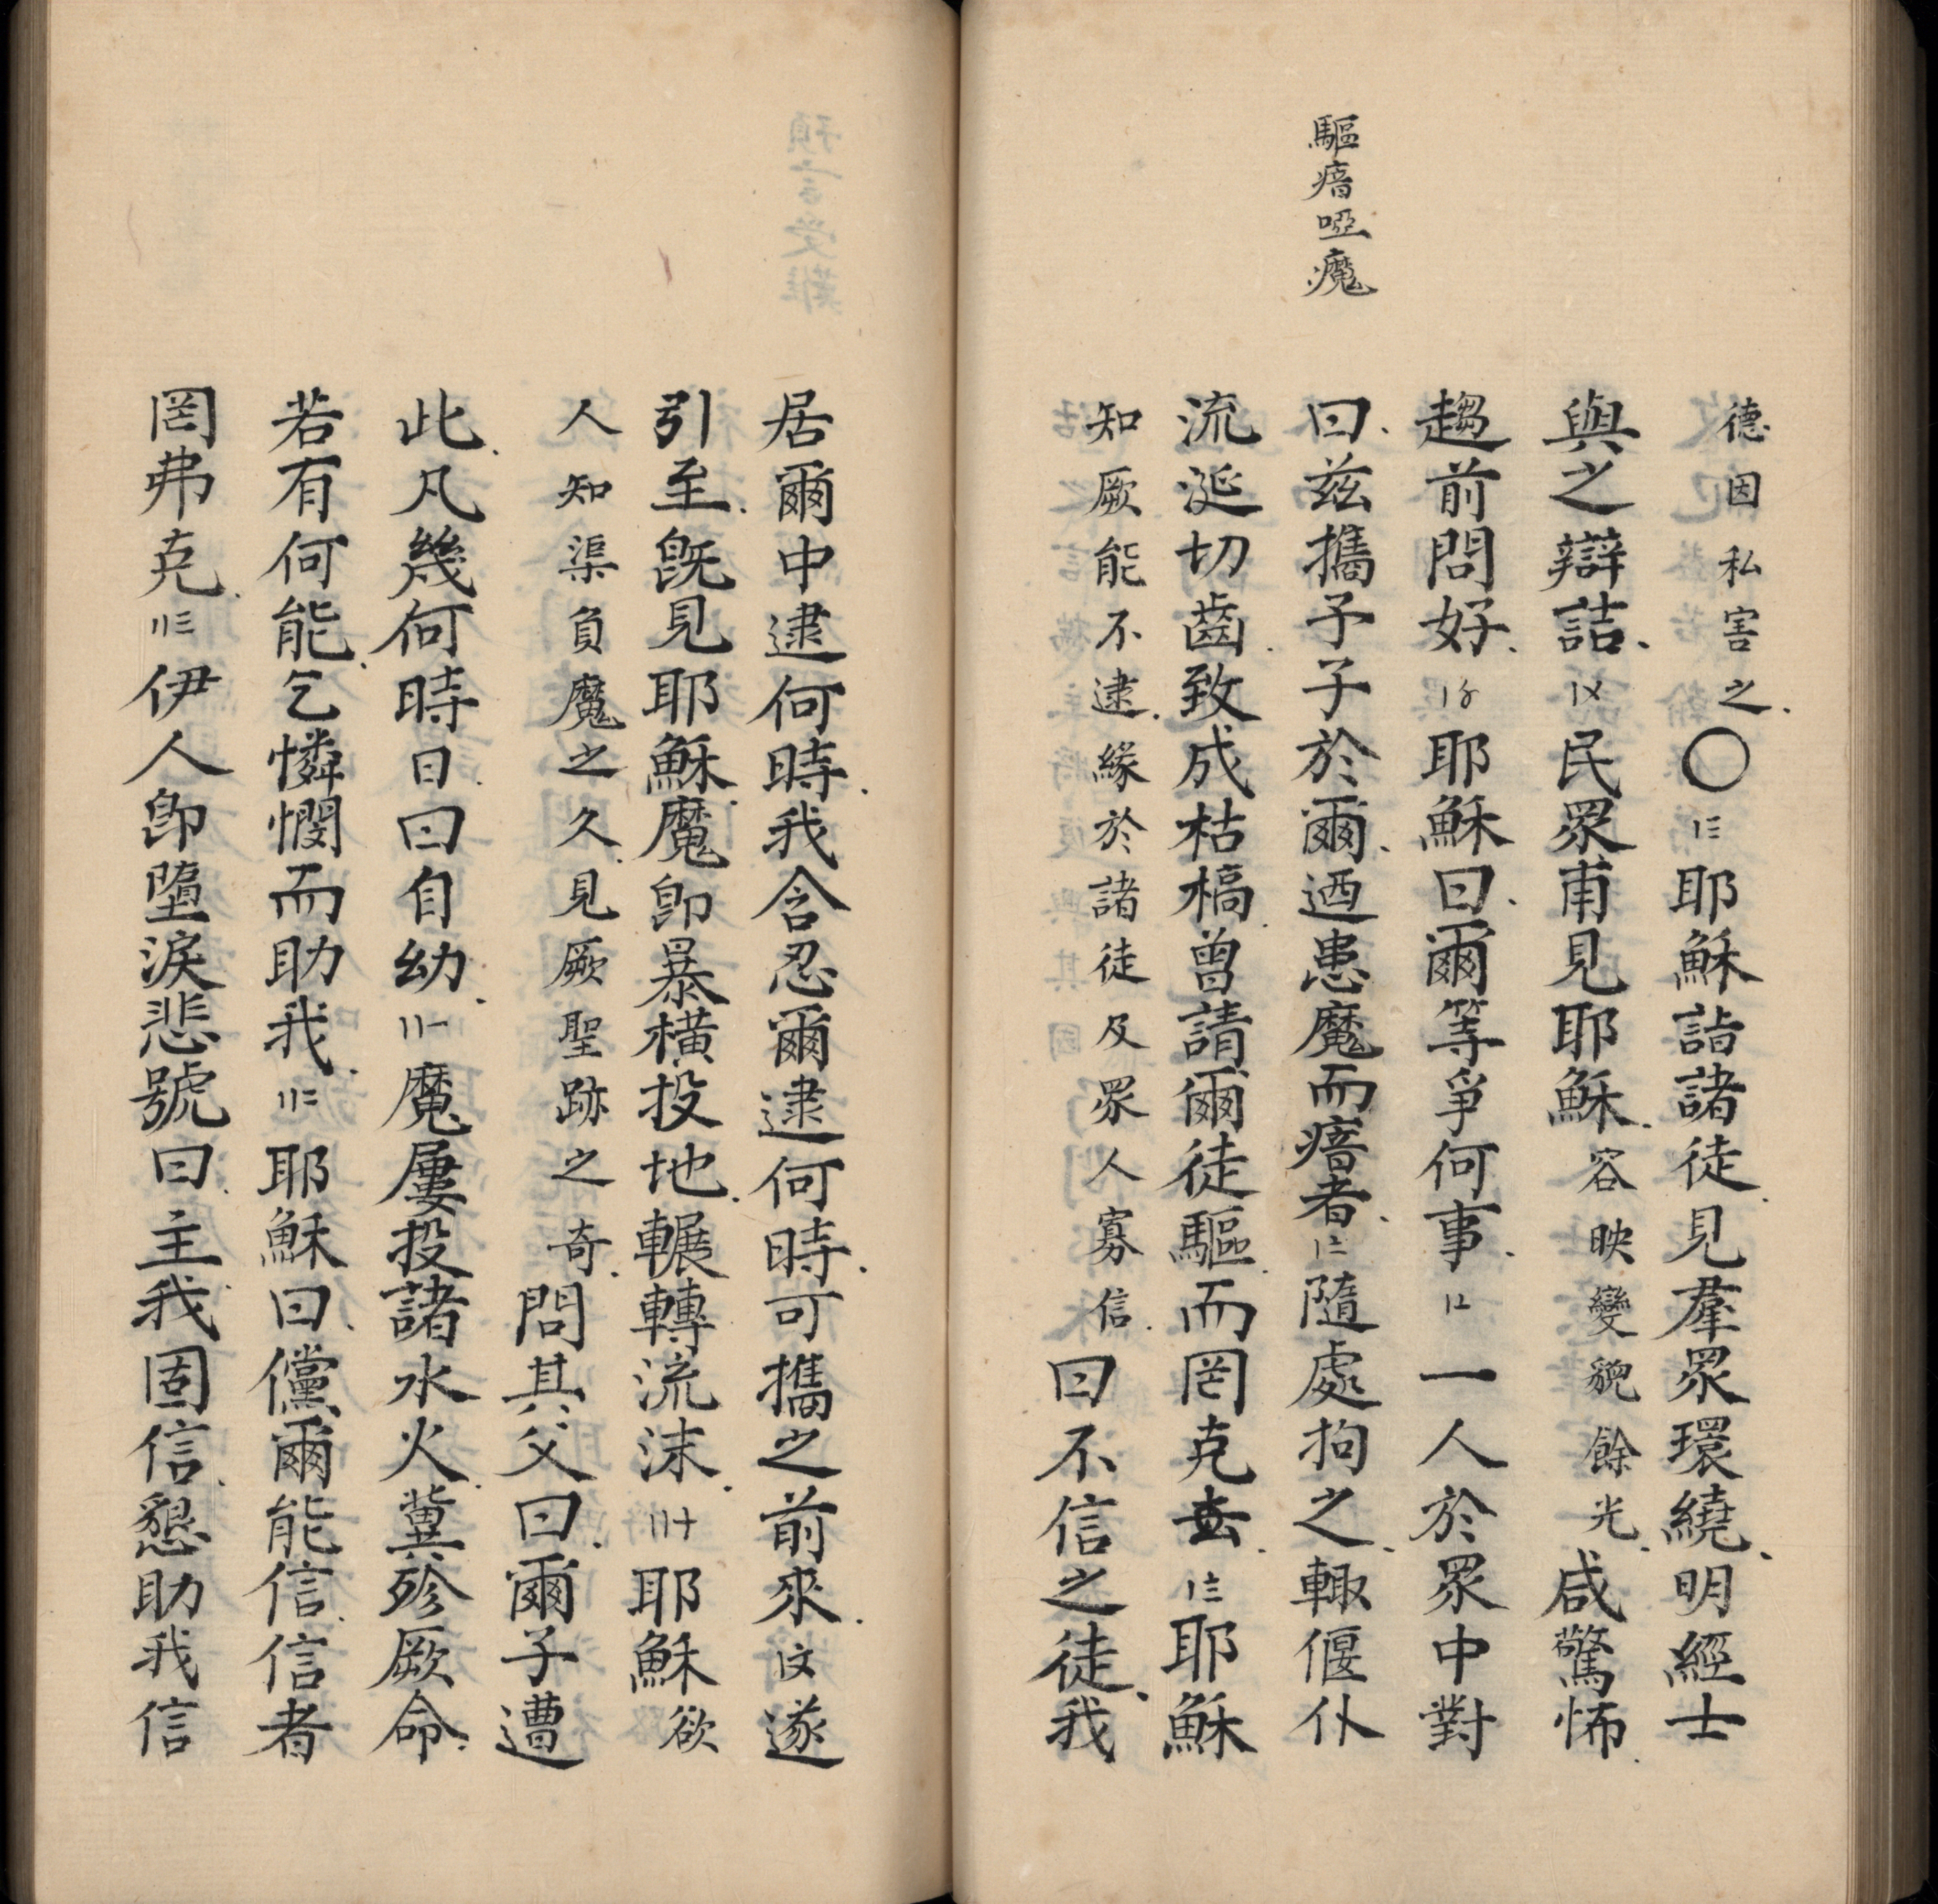 驅瘖啞魔
德因私害之、〇〡三耶穌詣諸徒、見羣眾環繞、明經士
與之辯詰、〡〤民眾甫見耶穌、容映變貌餘光、咸驚怖、
趨前問好、〡〥耶穌曰、爾等爭何事、〡〦一人於眾中對
曰、茲攜子子於爾、迺患魔而瘖者、〡〧隨處拘之、輙偃仆
流涎切齒、致成枯槁、曾請爾徒驅、而罔克去、〡〨耶穌
知厥能不逮、緣於諸徒及眾人寡信、曰不信之徒、我
居爾中逮何時、我含忍爾逮何時、可攜之前來、〡〩遂
引至、既見耶穌、魔即暴橫、投地、輾轉流沫、〢十耶穌欲
人知渠負魔之久、見厥聖跡之奇、問其父曰、爾子遭
此、凡幾何時日、曰自幼、〢一魔屢投諸水火、冀殄厥命、
若有何能、乞憐憫而助我、〢二耶穌曰、儻爾能信、信者
罔弗克、〢三伊人即墮淚悲號曰、主我固信、懇助我信